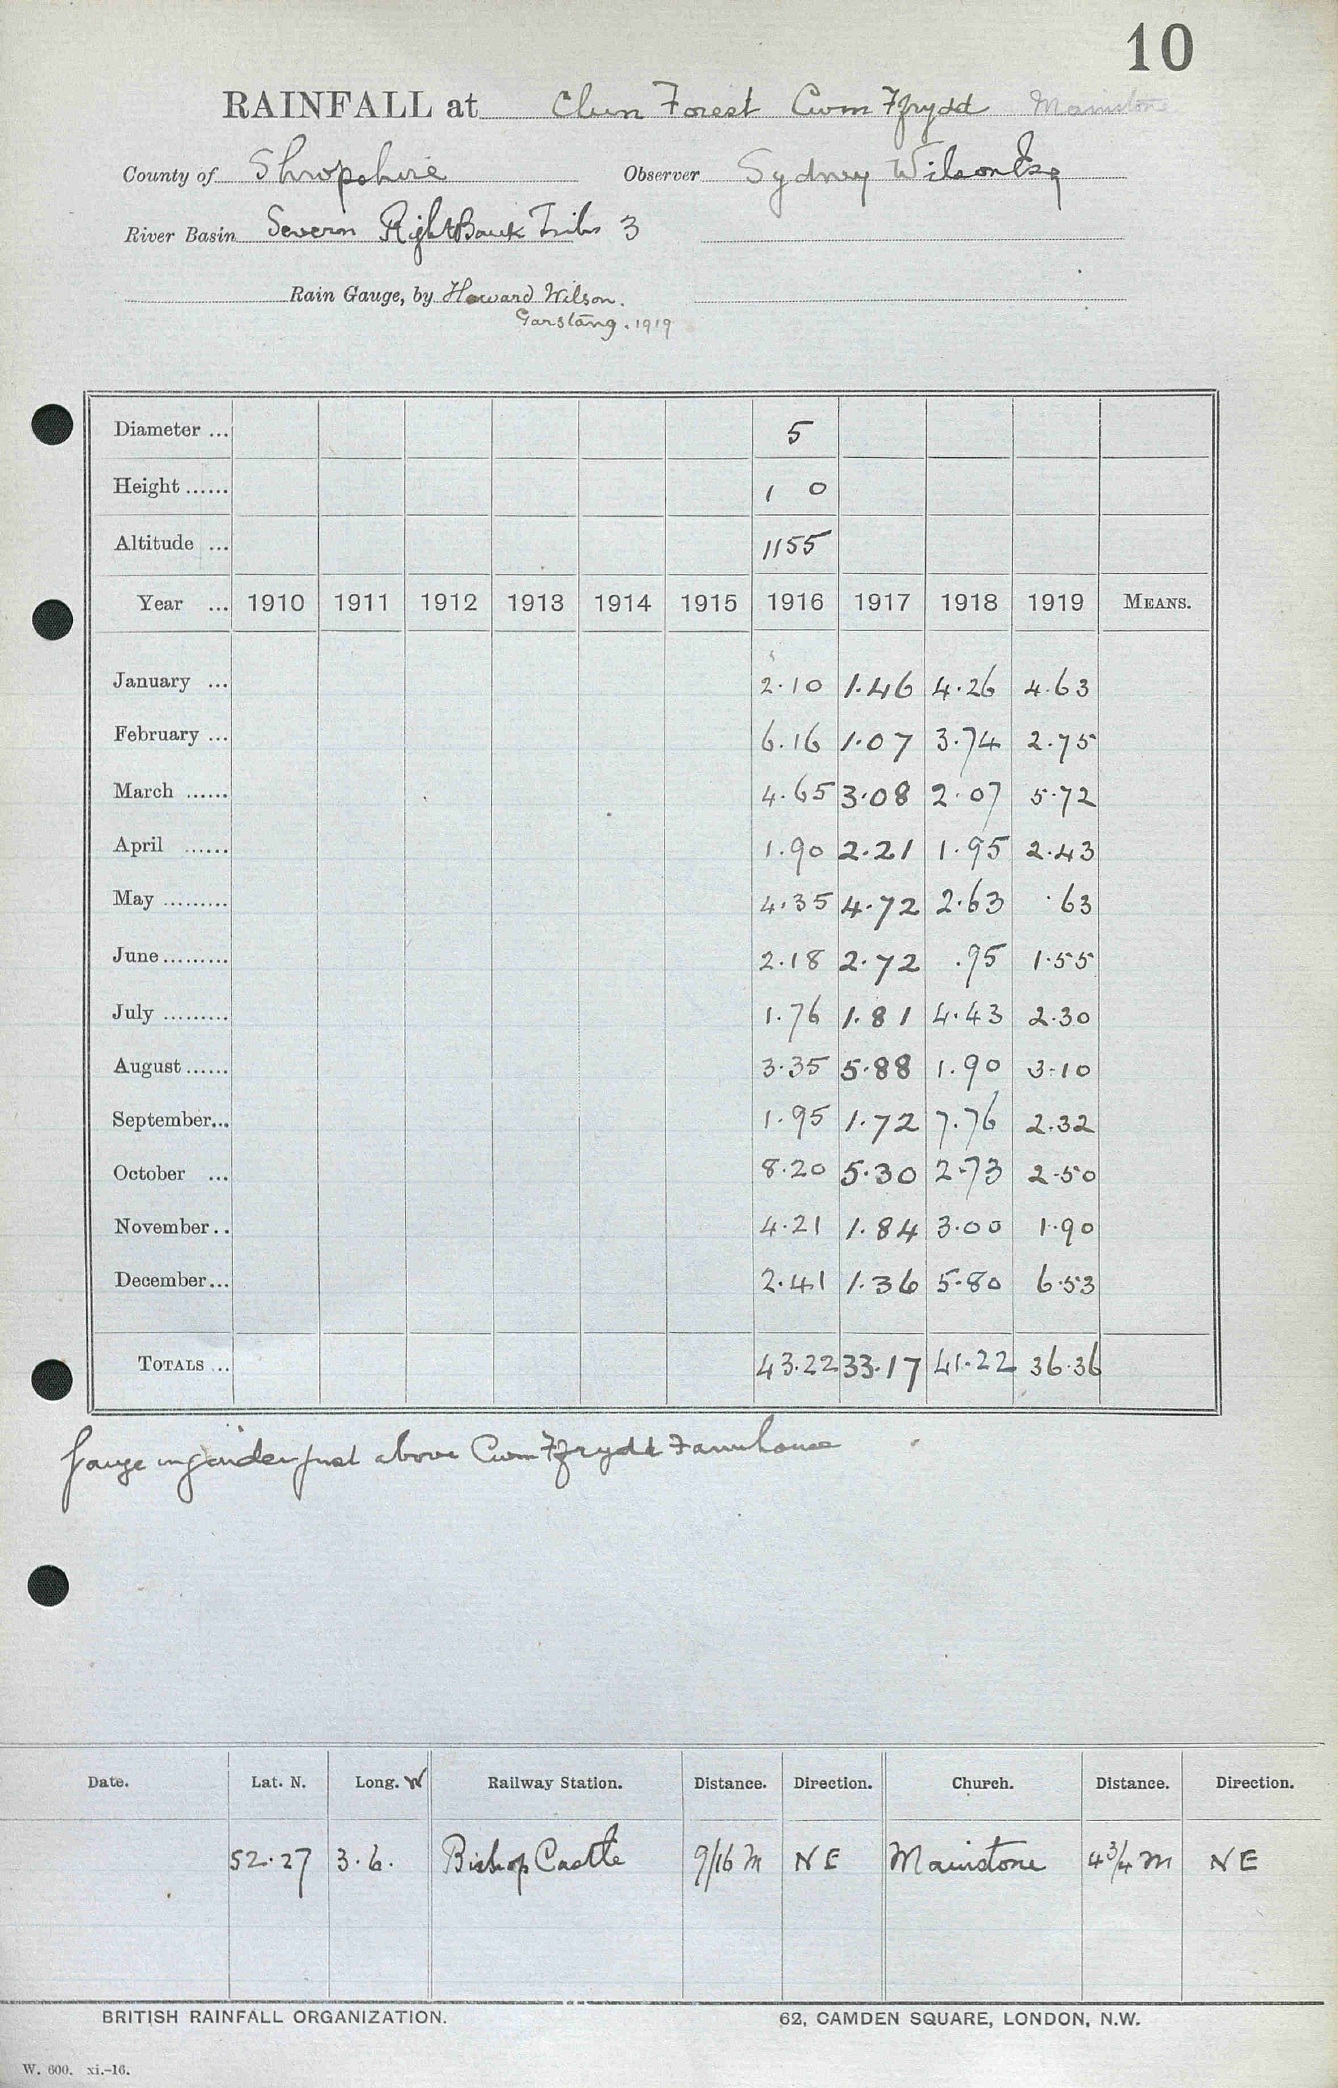 10
RAINFALL at Clun Forest Cwm Ffrydd Mainstone
County of Shropshire Observer Sydney Wilson Esq
River Basin Severn Right Bank Tribs 3
Rain Gauge, by Howard Wilson.
Garstang. 1919
Diameter ... 5
Height ...... 1 0
Altitude ... 1155
Year ... 1910 1911 1912 1913 1914 1915 1916 1917 1918 1919 MEANS.
January ... 2.10 1.46 4.26 4.63
February ... 6.16 1.07 3.74 2.75
March ...... 4.65 3.08 2.07 5.72
April ...... 1.90 2.21 1.95 2.43
May ......... 4.35 4.72 2.63 .63
June ......... 2.18 2.72 .95 1.55
July ......... 1.76 1.81 4.43 2.30
August ...... 3.35 5.88 1.90 3.10
September... 1.95 1.72 7.76 2.32
October ... 8.20 5.30 2.73 2.50
November.. 4.21 1.84 3.00 1.90
December... 2.41 1.36 5.80 6.53
TOTALS ... 43.22 33.17 41.22 36.36
Gauge in garden just above Cwm Ffrydd Farmhouse
Date. Lat. N. Long. W Railway Station. Distance. Direction. Church. Distance. Direction.
52.27 3.6. Bishop Castle 9/16 M NE Mainstone 4 3/4 M NE
BRITISH RAINFALL ORGANIZATION. 62, CAMDEN SQUARE, LONDON, N.W.
W. 600. xi.-16.